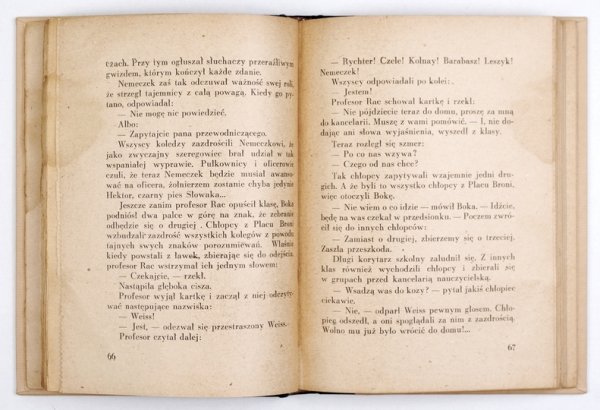 czach. Przy tym ogłuszał słuchaczy przeraźliwym
gwizdem, którym kończył każde zdanie.
Nemeczek zaś tak odczuwał ważność swej roli,
że strzegł tajemnicy z całą powagą. Kiedy go py-
tano, odpowiadał:
— Nie mogę nic powiedzieć.
Albo:
— Zapytajcie pana przewodniczącego.
Wszyscy koledzy zazdrościli Nemeczkowi, że
jako zwyczajny szeregowiec brał udział w tak
wspaniałej wyprawie. Pułkownicy i oficerowie
czuli, że teraz Nemeczek będzie musiał awanso-
wać na oficera, żołnierzem zostanie chyba jedynie
Hektor, czarny pies Słowaka...
Jeszcze zanim profesor Rac opuścił klasę, Boka
podniósł dwa palce w górę na znak, że zebranie
odbędzie się o drugiej. Chłopcy z Placu Broni
wzbudzali zazdrość wszystkich kolegów z powodu
tajnych swych znaków porozumiewań. Właśnie
kiedy powstali z ławek, zbierając się do odejścia,
profesor Rac wstrzymał ich jednym słowem:
— Czekajcie, — rzekł.
Nastąpiła głęboka cisza.
Profesor wyjął kartkę i zaczął z niej odczyty-
wać następujące nazwiska:
— Weiss!
— Jest, — odezwał się przestraszony Weiss.
Profesor czytał dalej:
66
— Rychter! Czele! Kolnay! Barabasz! Leszyk!
Nemeczek!
Wszyscy odpowiadali po kolei:
— Jestem!
Profesor Rac schował kartkę i rzekł:
— Nie pójdziecie teraz do domu, proszę za mną
do kancelarii. Muszę z wami pomówić. — I, nie do-
dając ani słowa wyjaśnienia, wyszedł z klasy.
Teraz rozległ się szmer:
— Po co nas wzywa?
— Czego od nas chce?
Tak chłopcy zapytywali wzajemnie jedni dru-
gich. A że byli to wszystko chłopcy z Placu Broni,
więc otoczyli Bokę.
— Nie wiem o co idzie — mówił Boka. — Idźcie,
będę na was czekał w przedsionku. — Poczem zwró-
cił się do innych chłopców:
— Zamiast o drugiej, zbierzemy się o trzeciej.
Zaszła przeszkoda.
Długi korytarz szkolny zaludnił się. Z innych
klas również wychodzili chłopcy i zbierali się
w grupach przed kancelarią nauczycielską.
— Wsadzą was do kozy? — pytał jakiś chłopiec
ciekawie.
— Nie, — odparł Weiss pewnym głosem. Chło-
piec odszedł, a oni spoglądali za nim z zazdrością.
Wolno mu już było wrócić do domu!...
67